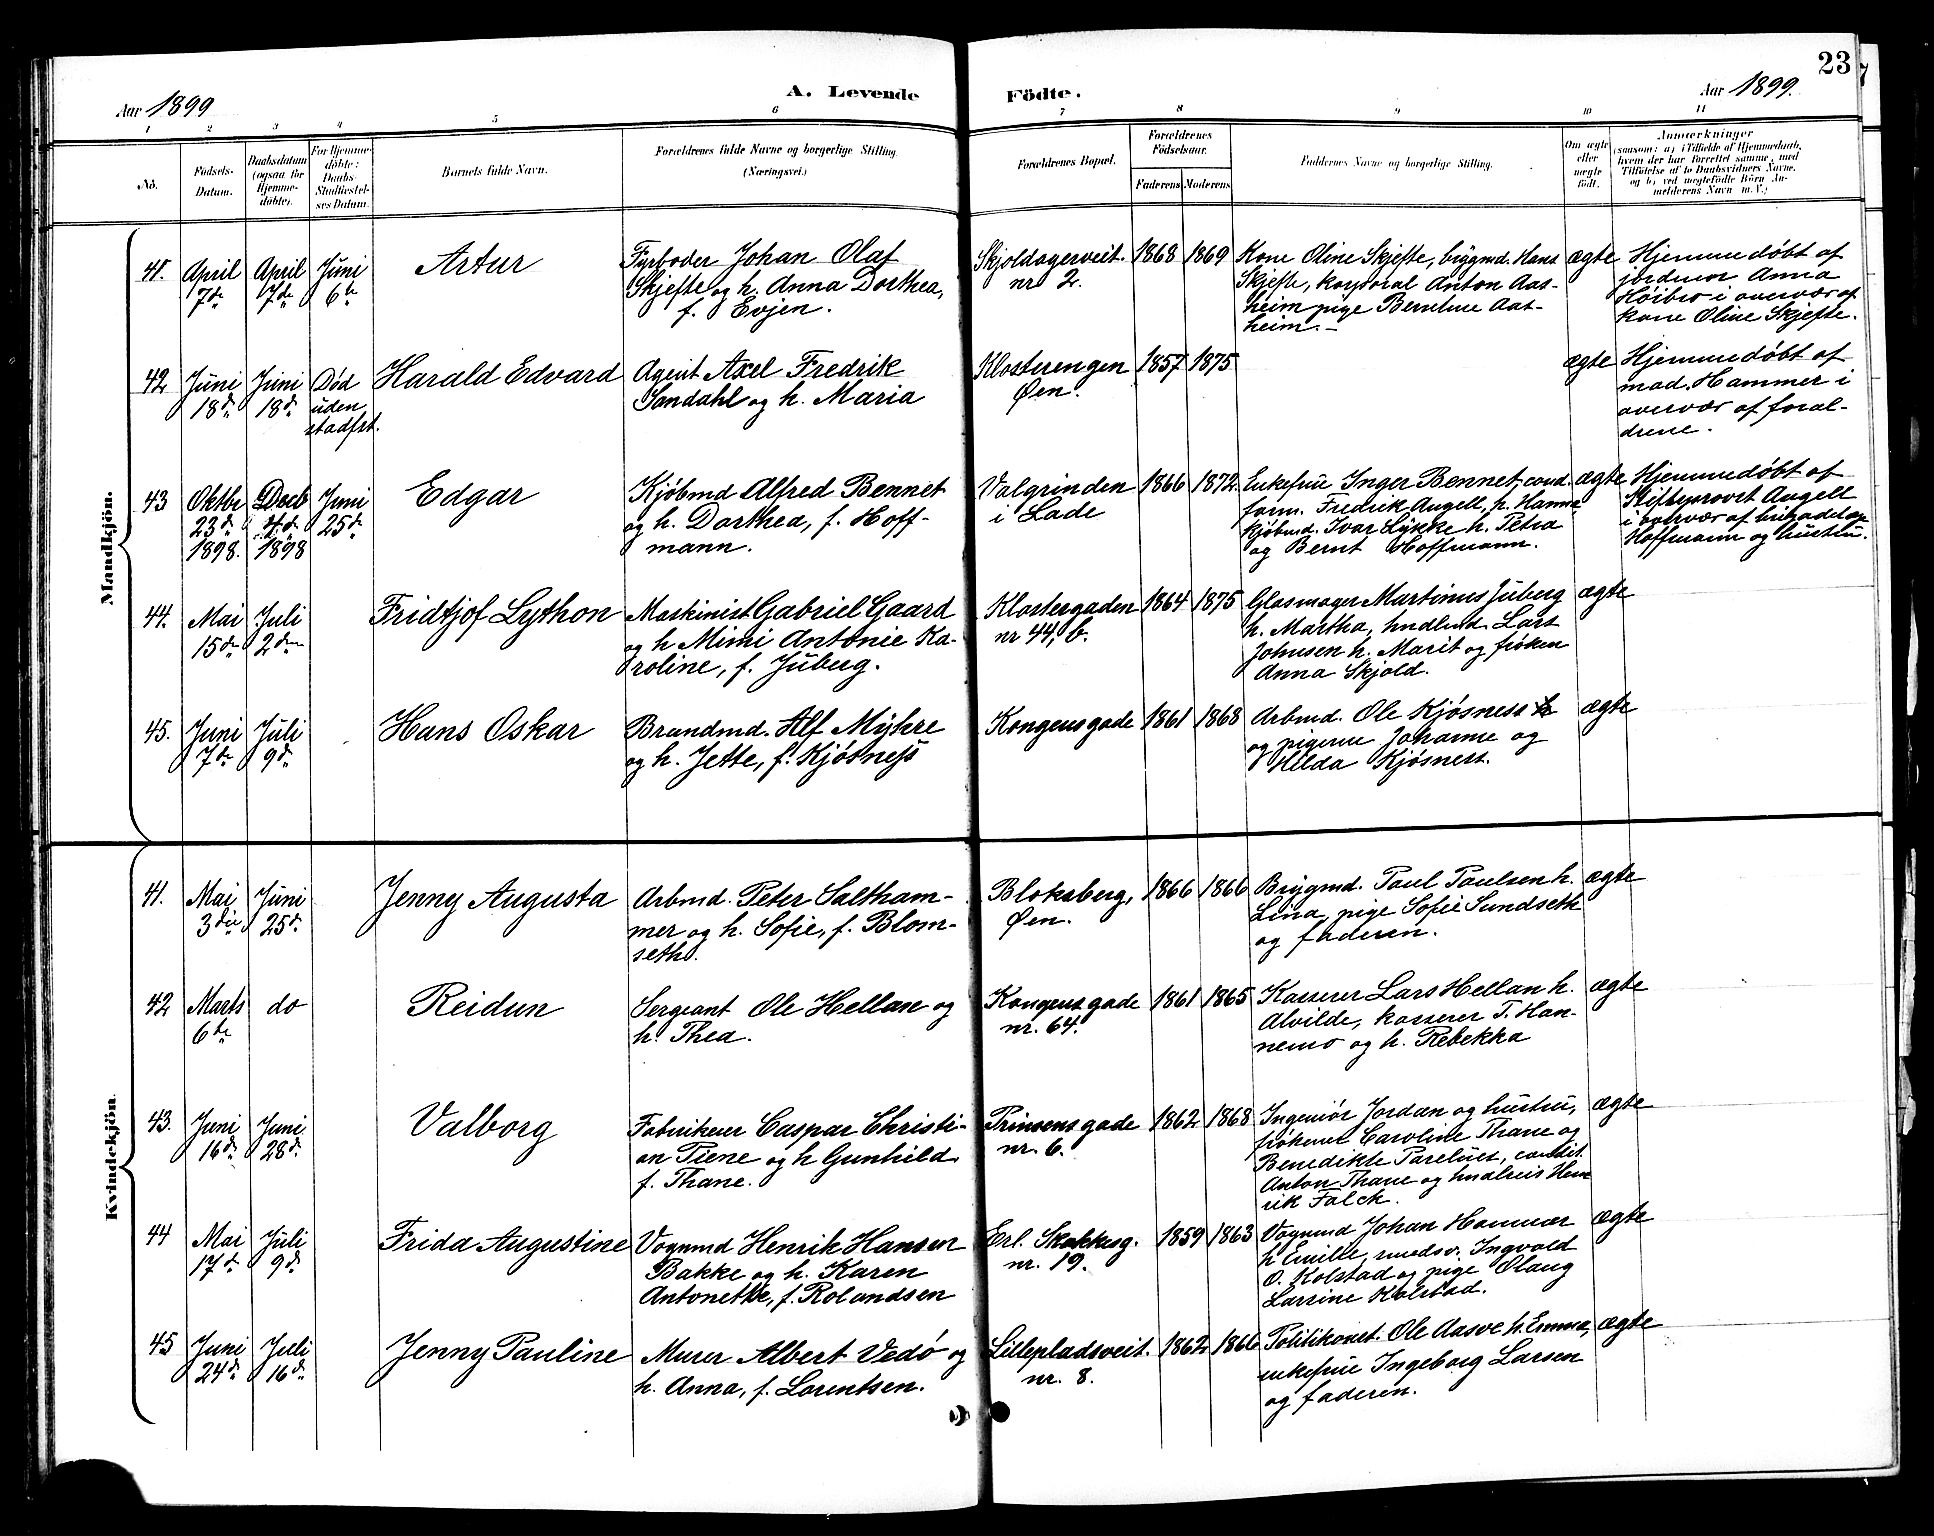 23
Aar 1899
A. Levende
Födte.
Aar 1899.
1 2 3 4 5 6 7 8 9 10 11
No.
Födsels-
Datum.
Daabsdatum
(ogsaa for
Hjemme-
døbte).
For Hjemme-
döbte:
Daabs-
Stadfæstel-
ses Datum.
Barnets fulde Navn.
Forældrenes fulde Navne og borgerlige Stilling
(Næringsvei.)
Forældrenes Bopæl.
Forældrenes
Födselsaar.
Faderens Moderens
Faddernes Navne og borgerlige Stilling.
Om ægte
eller
uægte
födt.
Anmærkninger
(saasom: a) i Tilfælde af Hjemmedaab,
hvem der har forrettet samme, med
Tilföielse af to Daabsvidners Navne,
og b) ved uægtefödte Börn An-
melderens Navn m. V.)
Mandkjön.
41.
April
7de
April
7de
Juni
6te
Artur
Fyrbøder Johan Olaf
Skjefte og h. Anna Dorthea,
f. Evjen.
Skjoldagerveit.
nr 2.
1868
1869
Kone Oline Skjefte, brygmd. Hans
Skjefte, korporal Anton Aas-
heim pige Berntine Aas-
heim.-
ægte
Hjemmedøbt af
jordmor Anna
Höibro i overvær af
kone Oline Skjefte.
42
Juni
18de
Juni
18de
Död
uden
stadfst.
Harald Edvard
Agent Axel Fredrik
Sandahl og h. Maria
Klosterengen
Øen.
1857
1875
ægte
Hjemmedøbt af
mad. Hammer i
overvær af foræl-
drene.
43
Oktbr
23de
1898.
Decb
4de
1898
Juni
25de
Edgar
Kjöbmd Alfred Bennet
og h. Dorthea, f. Hoff-
mann.
Valgrinden
i Lade
1866
1872.
Enkefrue Inger Bennet, cand.
farm. Fredrik Angell, h. Hanna
kjöbmd. Ivar Lykke h. Petra
og Bernt Hoffmann.
ægte
Hjemmedøbt af
Stiftsprovst Angell
i overvær af
Hoffmann og hustru.
44.
Mai
15de
Juli
2den
Fridtjof Lython
Maskinist Gabriel Gaard
og h Mimi Antonie Ka-
roline, f. Juberg.
Klostergaden
nr 44, b.
1864
1875
Glasmager Martinus Juberg
h. Martha, hndlmd. Lars
Johnsen h. Marit og fröken
Anna Skjold.
ægte
45.
Juni
7de
Juli
9de
Hans Oskar
Brandmd. Alf Myhre
og h. Jette, f. Kjösness
Kongensgade
1861
1868
Arbmd. Ole Kjösness
og pigerne Johanne og
Hilda Kjösness.
ægte
Kvindekjön.
41.
Mai
3die
Juni
25de
Jenny Augusta
Arbmd. Peter Saltham-
mer og h. Sofie, f. Blom-
seth.
Bloksberg,
Øen.
1866
1866
Brygmd. Paul Paulsen h.
Lina, pige Sofie Sundseth
og faderen.
ægte
42
Marts
6te
do
Reidun
Sergeant Ole Hellan og
h. Thea.
Kongensgade
nr. 64.
1861
1865
Kasserer Lars Hellan h.
Alvilde, kasserer T. Han-
nemo og h. Rebekka
ægte
43.
Juni
16de
Juni
28de
Valborg
Fabrikeier Caspar Christi-
an Piene og h Gunhild
f. Thane.
Prinsensgade
nr. 6.
1862
1868
Ingeniör Jordan og hustru,
frøkener Caroline Thane og
Benedikte Parelius,
Anton Thane og hndlreis Hen
rik Falck.
ægte
44
Mai
17de
Juli
9de
Frida Augustine
Vognmd Henrik Hansen
Bakke og h. Karen
Antonette, f. Rolandsen
Erl. Skakkesg.
nr. 19.
1859
1863
Vognmd Johan Hammer
h Emilie, smedsv. Ingvald
O. Kolstad og pige Olaug
Larsine Kolstad.
ægte
45
Juni
24de
Juli
16de
Jenny Pauline
Murer Albert Vedö og
h. Anna, f. Lorentsen.
Lillepladsveit.
nr. 8.
1862
1866
Politikonst. Ole Aasve h. Emma,
enkefrue Ingeborg Larsen
og faderen.
ægte